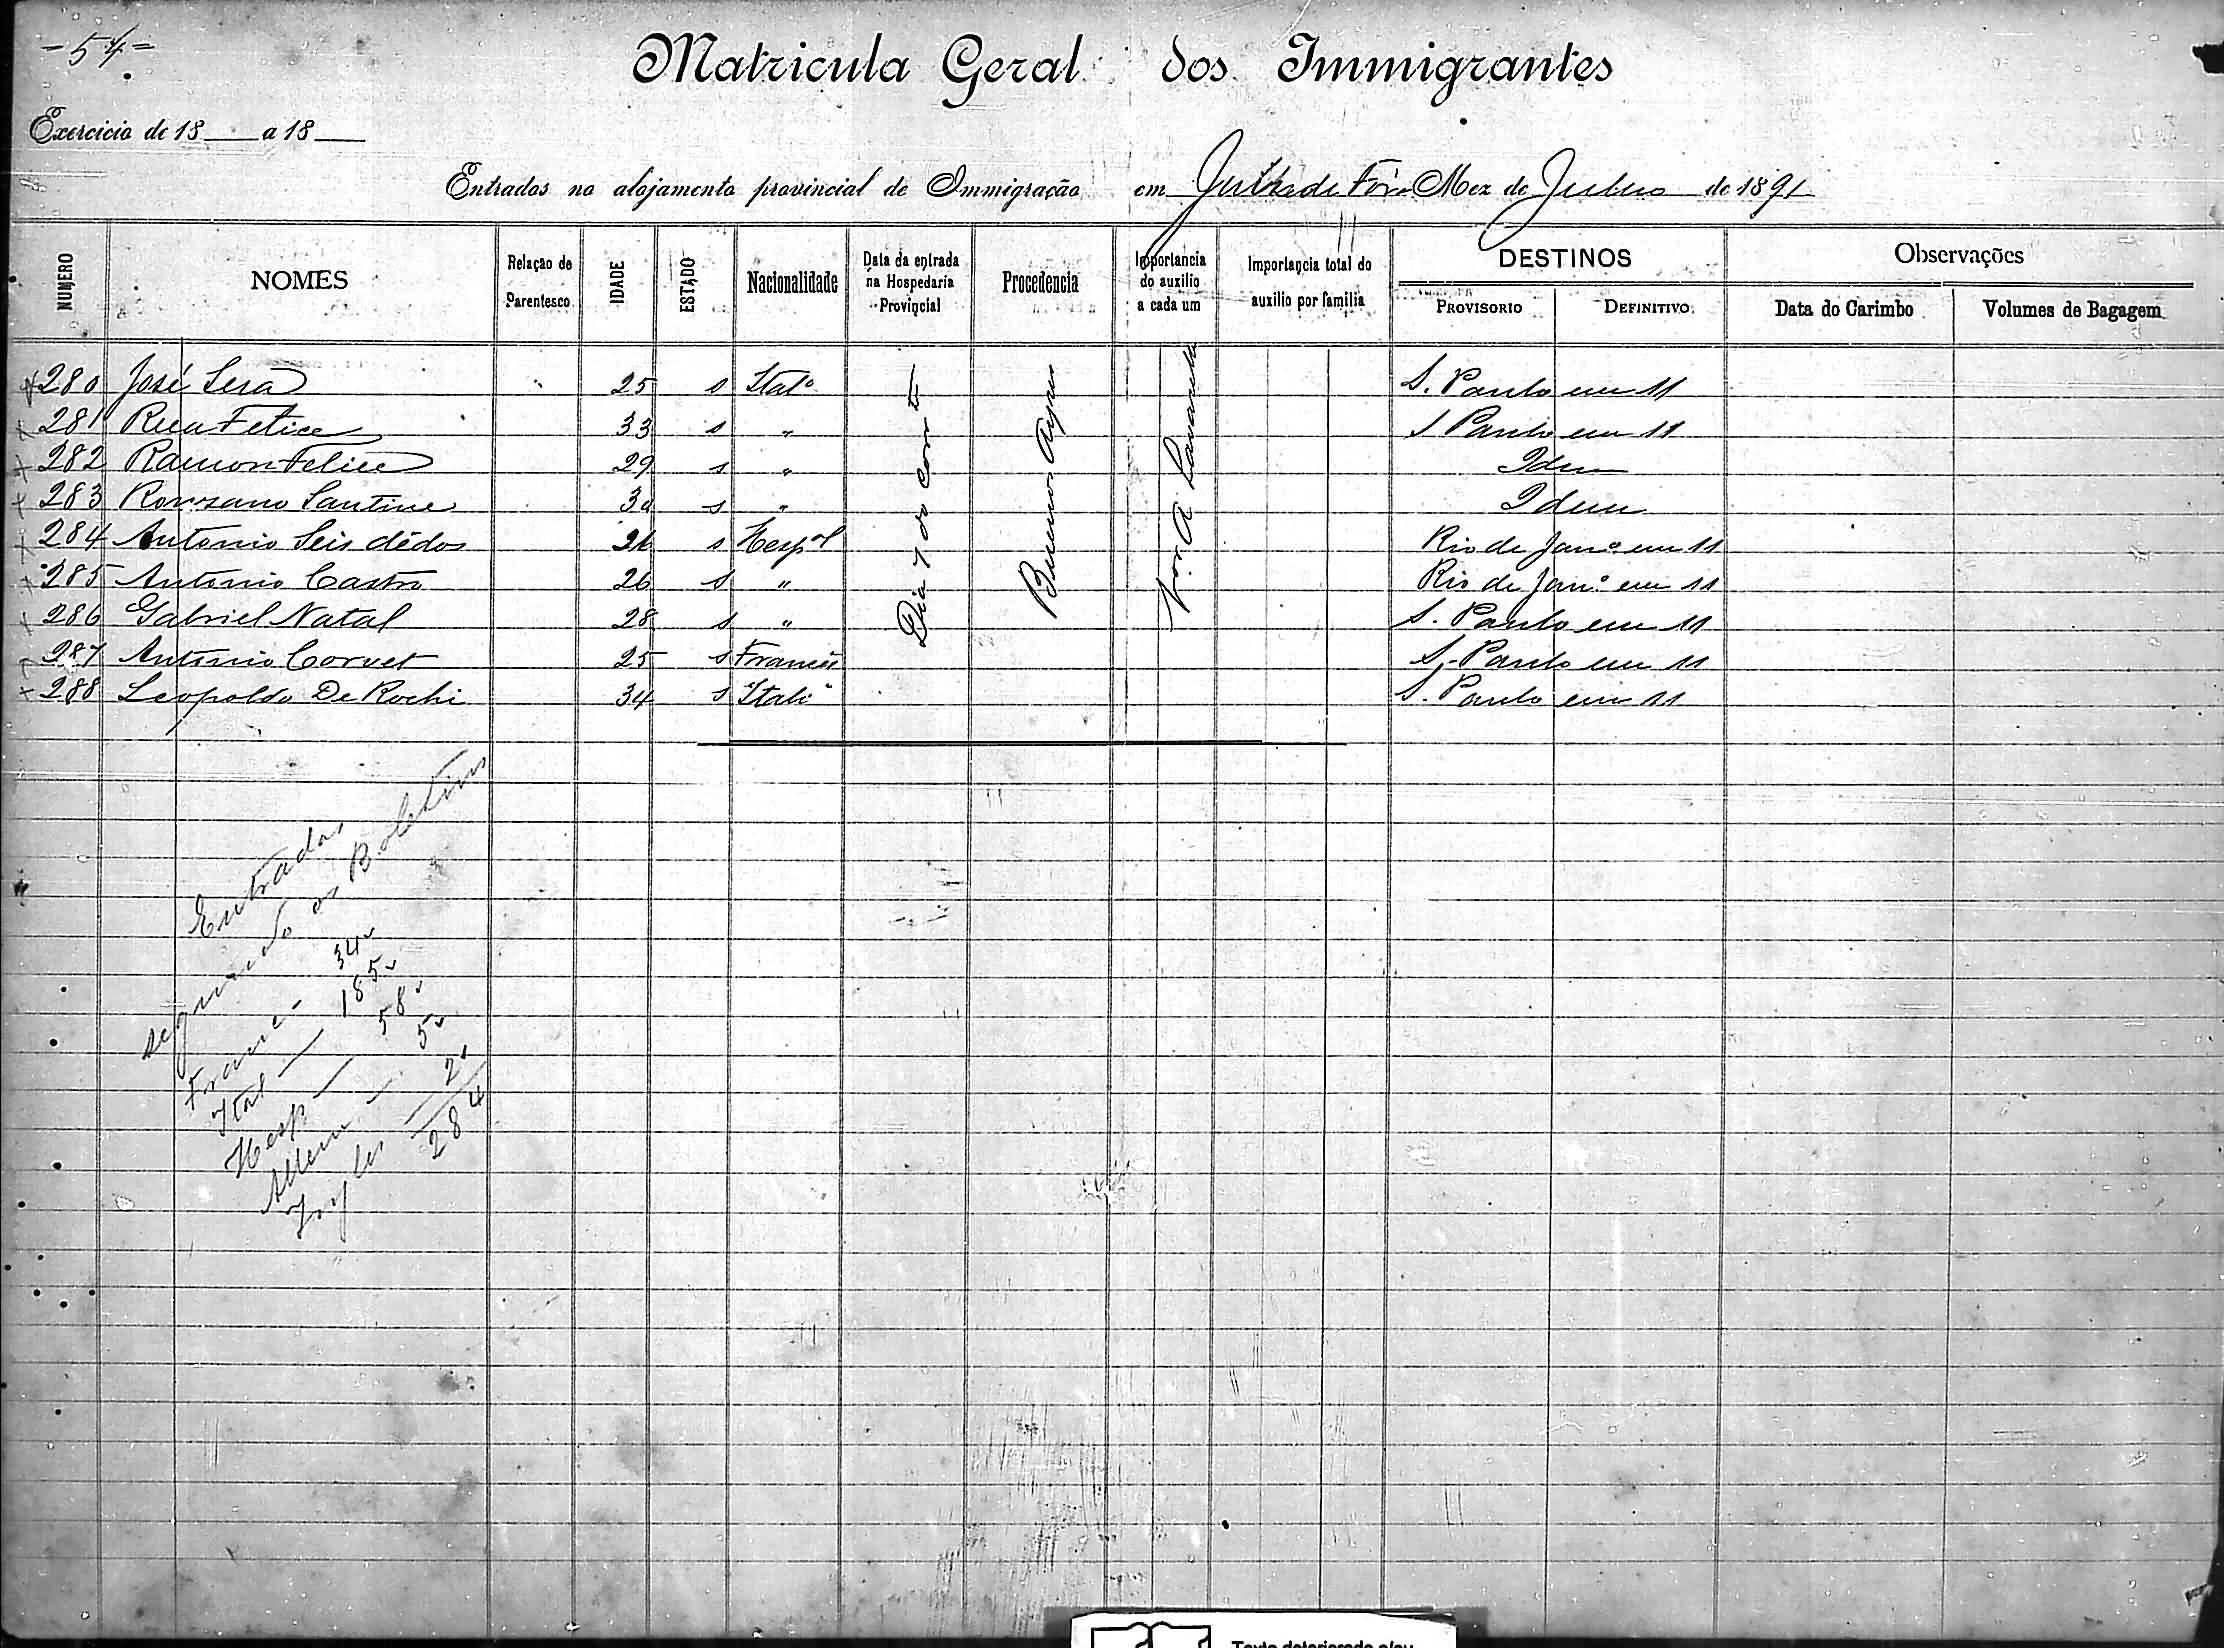 - 54 -
Matricula Geral dos Immigrantes
Exercicio de 18 a 18
Entrados no alojamento provincial de Immigração em Juiz de Fóra Mez de Julho de 1891
NUMERO NOMES Relação de Parentesco IDADE ESTADO Nacionalidade Data da entrada na Hospedaria Provincial Procedencia Importancia do auxilio a cada um Importancia total do auxilio por familia DESTINOS Observações
PROVISORIO DEFINITIVO Data do Carimbo Volumes de Bagagem
280 José Sera 25 s Ital° S. Paulo em 11
281 Felice 33 s " S Paulo em 11
282 Ramon Felice 29 s " Idem
283 Santine 30 s " Idem
284 Antonio Seis dêdos 26 s Hesp^l Rio de Jan° em 11
285 Antonio Castro 26 s " Rio de Jan° em 11
286 Gabriel Natal 28 s " S. Paulo em 11
287 Antonio Corvet 25 s Francês S. Paulo em 11
288 Leopoldo De Rochi 34 s Itali° S. Paulo em 11
Dia 7 do corr te
Buenos Ayres
Vor. A
Entrados
segundo os Boletins
Franc - 34
Ital - 185
Hesp - 58
Allem - 5
Ingles 2
284